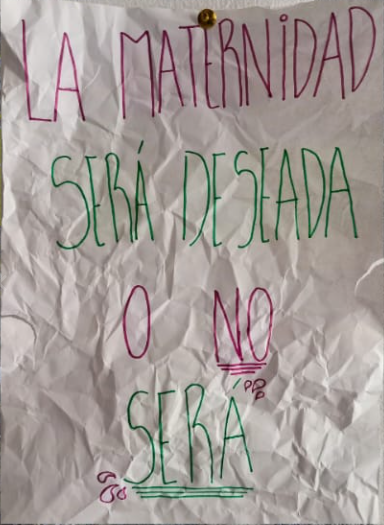 LA MATERNIDAD
SERÁ DESEADA
O NO
SERÁ